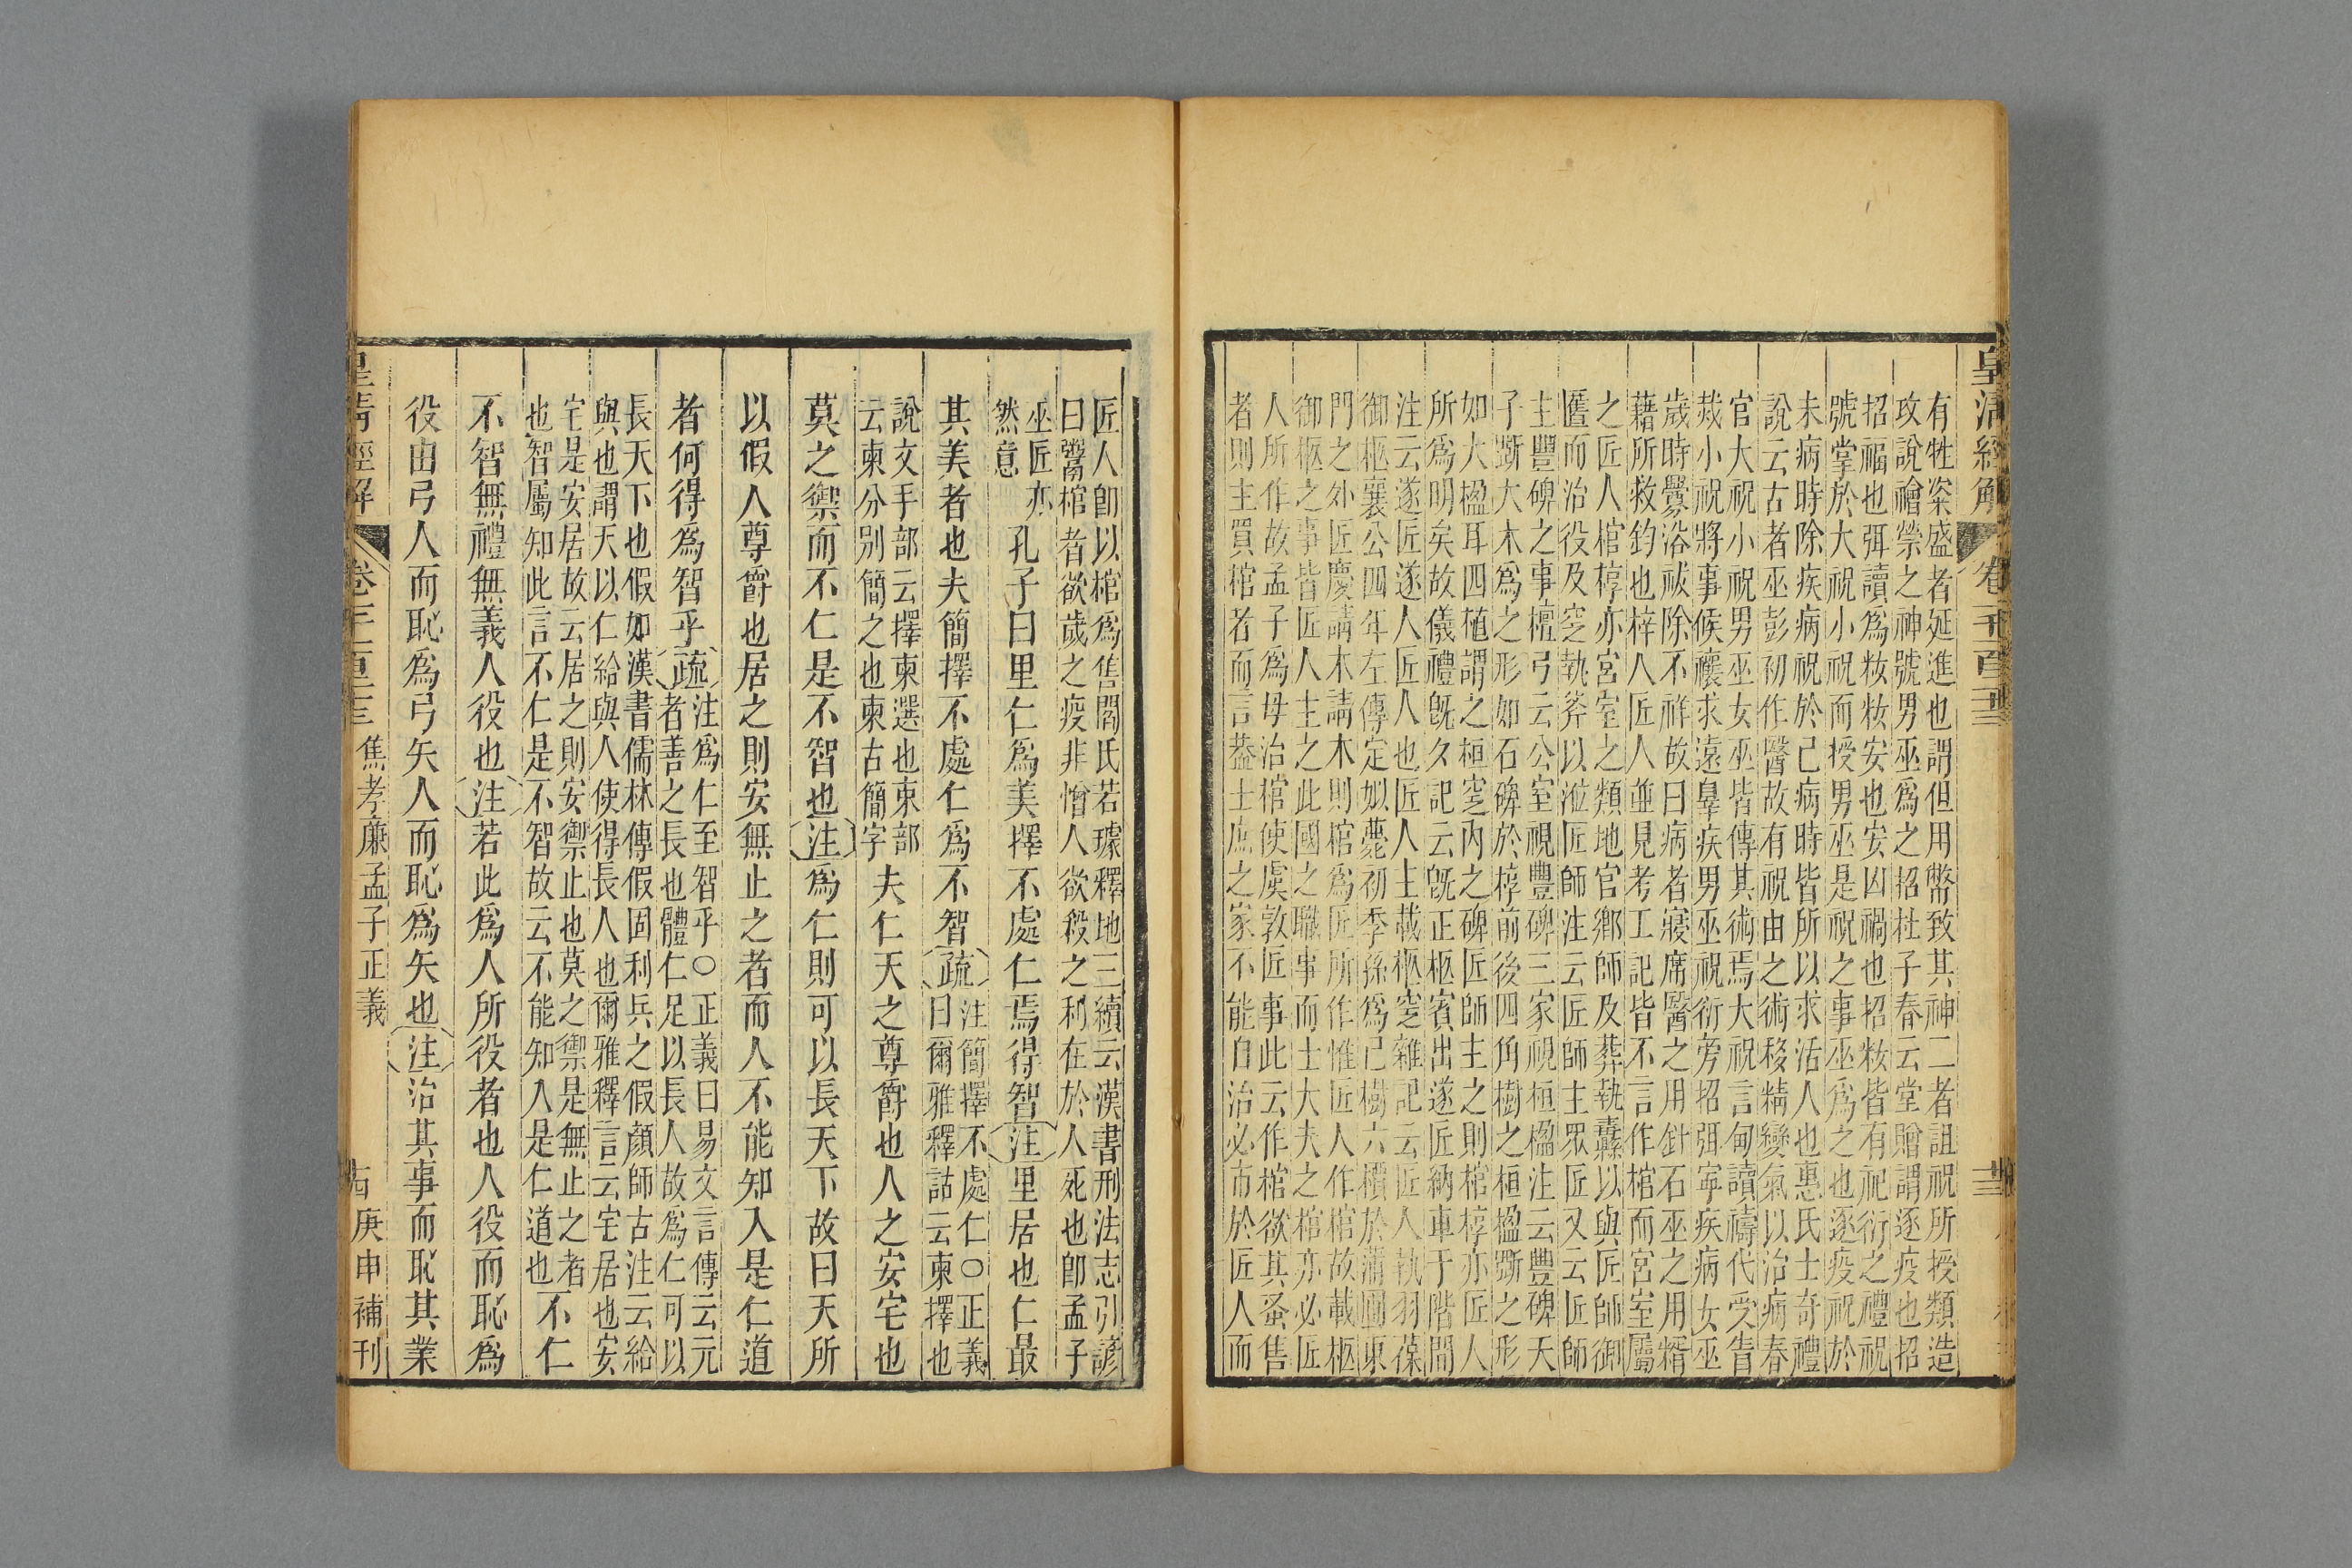 皇清經解
卷一千百三十三
有牲粢盛者延進也謂但用幣致其神二者詛祝所授類造
攻說禬禜之神號男巫爲之招杜子春云堂贈謂逐疫也招
招福也弭讀爲敉敉安也安凶禍也招敉皆有祀衍之禮祝
號掌於大祝小祝而授男巫是祝之事巫爲之也逐疫祝於
未病時除疾病祝於已病時皆所以求活人也惠氏士奇禮
說云古者巫彭初作醫故有祝由之術移精變氣以治病春
官大祝小祝男巫女巫皆傳其術焉大祝言甸讀禱代受眚
烖小祝將事候禳求遠辠疾男巫祝衍旁招弭寧疾病女巫
歲時釁浴祓除不祥故曰病者寢席醫之用針石巫之用糈
藉所救鈞也梓人匠人並見考工記皆不言作棺而宮室屬
之匠人棺椁亦宮室之類地官鄉師及葬執纛以與匠師御
匶而治役及窆執斧以涖匠師注云匠師主眾匠又云匠師
主豐碑之事檀弓云公室視豐碑三家視桓楹注云豐碑天
子斲大木爲之形如石碑於椁前後四角樹之桓楹斲之形
如大楹耳四植謂之桓窆內之碑匠師主之則棺椁亦匠人
所爲明矣故儀禮旣夕記云旣正柩賓出遂匠納車于階間
注云遂匠遂人匠人也匠人主載柩窆雜記云匠人執羽葆
御柩襄公四年左傳定姒薨初季孫爲己樹六檟於蒲圃東
門之外匠慶請木請木則棺爲匠所作惟匠人作棺故載柩
御柩之事皆匠人主之此國之職事而士大夫之棺亦必匠
人所作故孟子爲母治棺使虞敦匠事此云作棺欲其蚤售
者則主買棺者而言葢士庶之家不能自治必市於匠人而
匠人卽以棺爲售閻氏若璩釋地三續云漢書刑法志引諺
曰鬻棺者欲歲之疫非憎人欲殺之利在於人死也卽孟子
巫匠亦
然意
孔子曰里仁爲美擇不處仁焉得智注里居也仁最
其美者也夫簡擇不處仁爲不智疏
注簡擇不處仁○正義
曰爾雅釋詁云柬擇也
說文手部云擇柬選也柬部
云柬分別簡之也柬古簡字
夫仁天之尊爵也人之安宅也
莫之禦而不仁是不智也注爲仁則可以長天下故曰天所
以假人尊爵也居之則安無止之者而人不能知入是仁道
者何得爲智乎疏
注爲仁至智乎○正義曰易文言傳云元
者善之長也體仁足以長人故爲仁可以
長天下也假如漢書儒林傳假固利兵之假顏師古注云給
與也謂天以仁給與人使得長人也爾雅釋言云宅居也安
宅是安居故云居之則安禦止也莫之禦是無止之者
也智屬知此言不仁是不智故云不能知入是仁道也
不仁
不智無禮無義人役也注若此爲人所役者也人役而恥爲
役由弓人而恥爲弓矢人而恥爲矢也注治其事而恥其業
皇清經解
焦孝廉孟子正義
古
庚申補刊